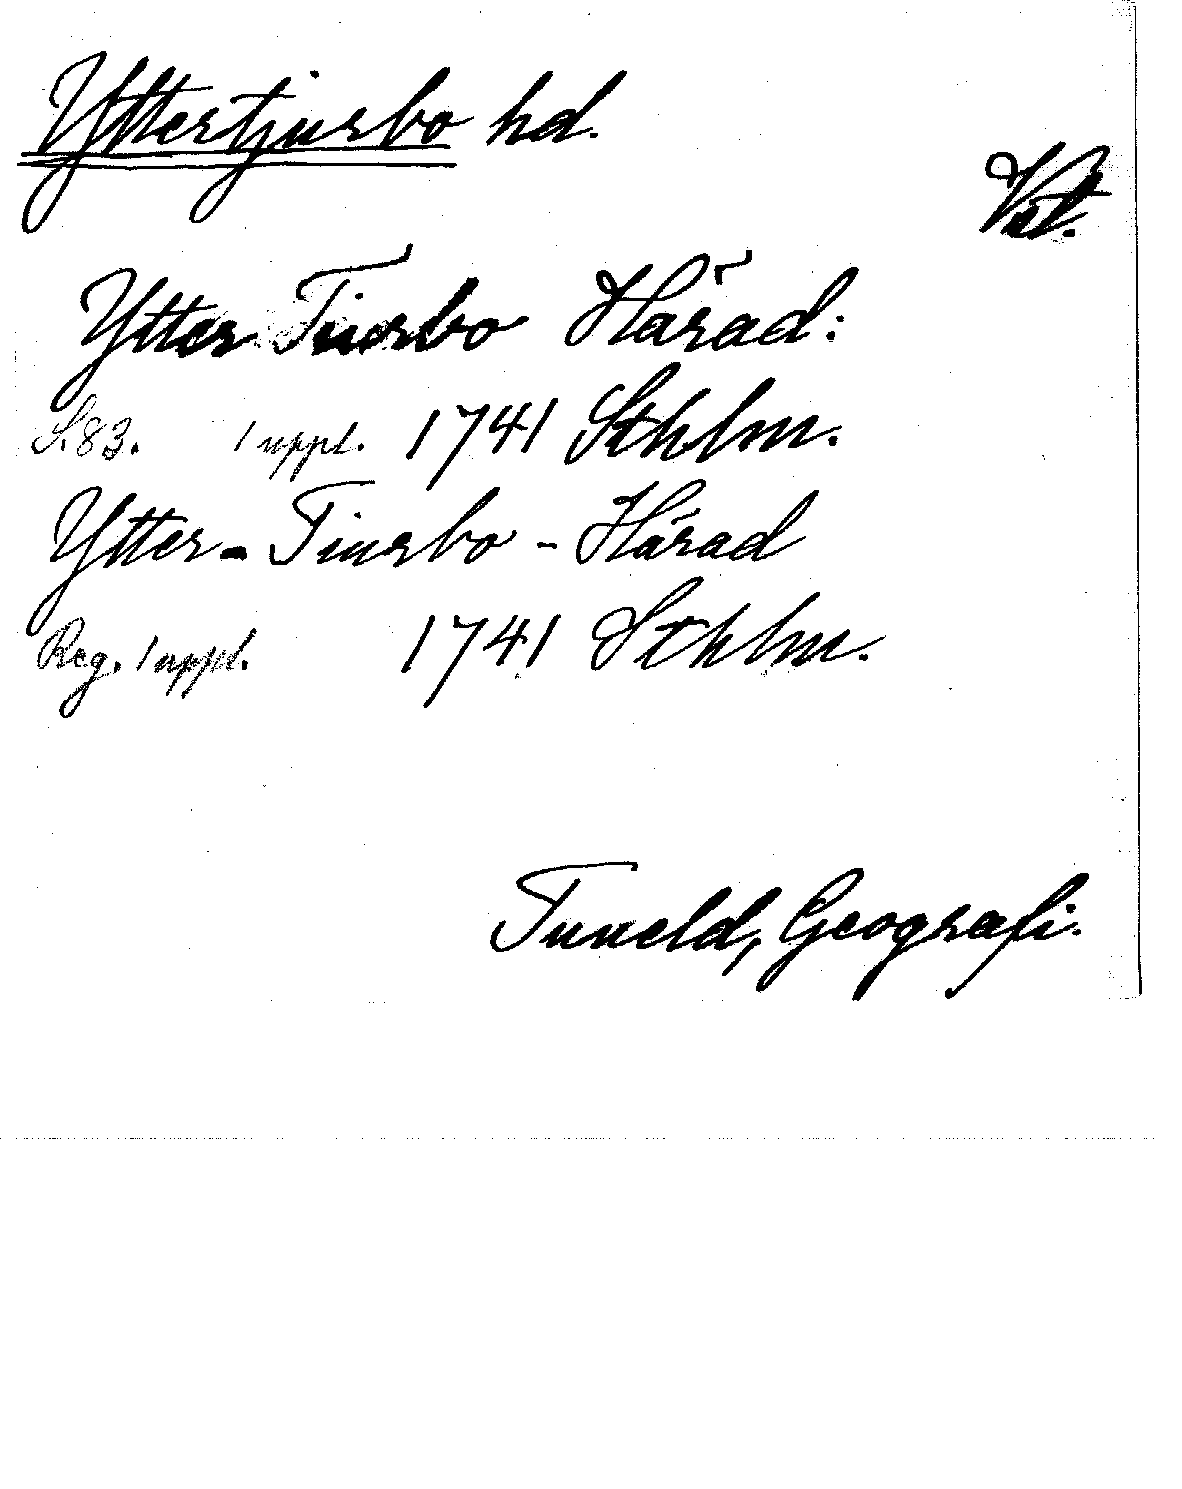 Yttertjurbo hd.
Vstm.
Ytter Tiurbo Härad:
S. 83. 1 uppl. 1741 Sthlm.
Ytter-Tiurbo-Härad
Reg. 1 uppl. 1741 Sthlm.
Tuneld, Geografi.